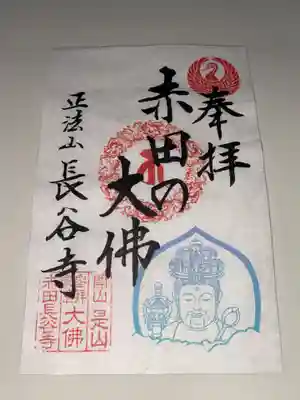 奉拝
赤田の
大佛
正法山 長谷寺
大佛
赤田長谷寺